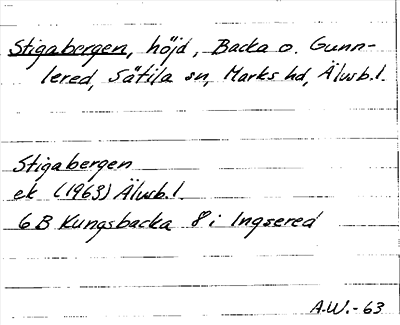 Stigabergen, höjd, Backa o. Gunn-
lered, Sätila sn, Marks hd, Älvsb.l.
Stigabergen
ek (1963) Älvsb.l.
6B Kungsbacka 8 i Ingsered
A.W.-63